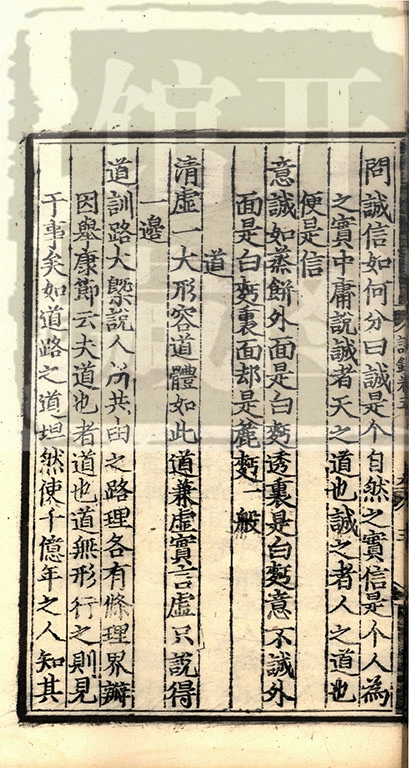 問誠信如何分曰誠是个自然之實信是个人為
之實中庸說誠者天之道也誠之者人之道也
便是信
意誠如蒸餅外面是白麪透裏是白麪意不誠外
面是白麪裏面却是麄麪一般
道
清虛一大形容道體如此道兼虛實言虛只說得
一邊
道訓路大槩說人所共由之路理各有條理界瓣
因舉康節云夫道也者道也道無形行之則見
于事矣如道路之道坦然使千億年之人知其